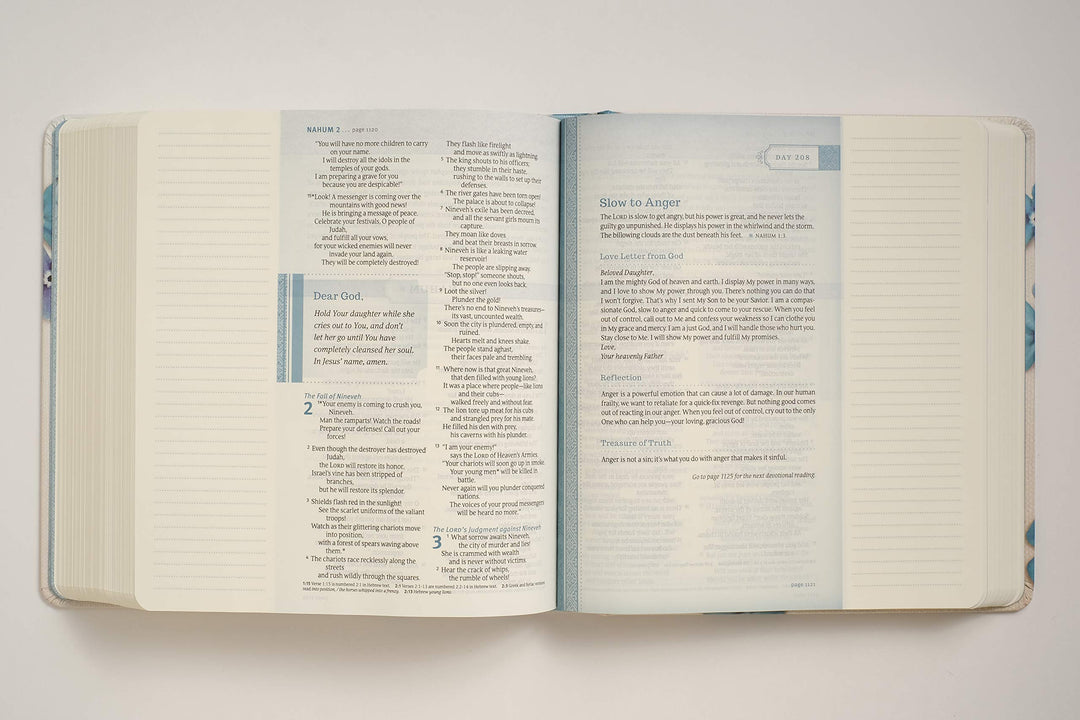 NAHUM 2 . . . page 1120
“You will have no more children to carry
on your name.
I will destroy all the idols in the
temples of your gods.
I am preparing a grave for you
because you are despicable!”
15*Look! A messenger is coming over the
mountains with good news!
He is bringing a message of peace.
Celebrate your festivals, O people of
Judah,
and fulfill all your vows,
for your wicked enemies will never
invade your land again.
They will be completely destroyed!
Dear God,
Hold Your daughter while she
cries out to You, and don’t
let her go until You have
completely cleansed her soul.
In Jesus’ name, amen.
The Fall of Nineveh
2 1*Your enemy is coming to crush you,
Nineveh.
Man the ramparts! Watch the roads!
Prepare your defenses! Call out your
forces!
2 Even though the destroyer has destroyed
Judah,
the LORD will restore its honor.
Israel’s vine has been stripped of
branches,
but he will restore its splendor.
3 Shields flash red in the sunlight!
See the scarlet uniforms of the valiant
troops!
Watch as their glittering chariots move
into position,
with a forest of spears waving above
them.*
4 The chariots race recklessly along the
streets
and rush wildly through the squares.
They flash like firelight
and move as swiftly as lightning.
5 The king shouts to his officers;
they stumble in their haste,
rushing to the walls to set up their
defenses.
6 The river gates have been torn open!
The palace is about to collapse!
7 Nineveh’s exile has been decreed,
and all the servant girls mourn its
capture.
They moan like doves
and beat their breasts in sorrow.
8 Nineveh is like a leaking water
reservoir!
The people are slipping away.
“Stop, stop!” someone shouts,
but no one even looks back.
9 Loot the silver!
Plunder the gold!
There’s no end to Nineveh’s treasures—
its vast, uncounted wealth.
10 Soon the city is plundered, empty, and
ruined.
Hearts melt and knees shake.
The people stand aghast,
their faces pale and trembling.
11 Where now is that great Nineveh,
that den filled with young lions?
It was a place where people—like lions
and their cubs—
walked freely and without fear.
12 The lion tore up meat for his cubs
and strangled prey for his mate.
He filled his den with prey,
his caverns with his plunder.
13 “I am your enemy!”
says the LORD of Heaven’s Armies.
“Your chariots will soon go up in smoke.
Your young men* will be killed in
battle.
Never again will you plunder conquered
nations.
The voices of your proud messengers
will be heard no more.”
The LORD’s Judgment against Nineveh
3 1 What sorrow awaits Nineveh,
the city of murder and lies!
She is crammed with wealth
and is never without victims.
2 Hear the crack of whips,
the rumble of wheels!
1:15 Verse 1:15 is numbered 2:1 in Hebrew text. 2:1 Verses 2:1-13 are numbered 2:2-14 in Hebrew text. 2:3 Greek and Syriac versions
read into position, / the horses whipped into a frenzy. 2:13 Hebrew young lions.
DAY 208
Slow to Anger
The LORD is slow to get angry, but his power is great, and he never lets the
guilty go unpunished. He displays his power in the whirlwind and the storm.
The billowing clouds are the dust beneath his feet. NAHUM 1:3
Love Letter from God
Beloved Daughter,
I am the mighty God of heaven and earth. I display My power in many ways,
and I love to show My power through you. There’s nothing you can do that
I won’t forgive. That’s why I sent My Son to be your Savior. I am a compas-
sionate God, slow to anger and quick to come to your rescue. When you feel
out of control, call out to Me and confess your weakness so I can clothe you
in My grace and mercy. I am a just God, and I will handle those who hurt you.
Stay close to Me. I will show My power and fulfill My promises.
Love,
Your heavenly Father
Reflection
Anger is a powerful emotion that can cause a lot of damage. In our human
frailty, we want to retaliate for a quick-fix revenge. But nothing good comes
out of reacting in our anger. When you feel out of control, cry out to the only
One who can help you—your loving, gracious God!
Treasure of Truth
Anger is not a sin; it’s what you do with anger that makes it sinful.
Go to page 1125 for the next devotional reading.
page 1121